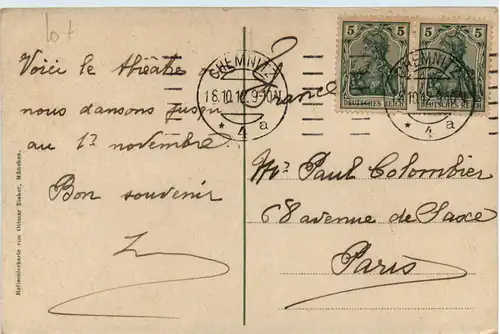 lot
Voici le théâtre
nous dansons jusqu
au 1er novembre
Bon souvenir
Reliefpostkarte von Ottmar Zieher, München.
CHEMNITZ
18.10.12.9-10V.
* 4 a
France
5 5
DEUTSCHES REICH
CHEMNITZ
* 4 a
Mr Paul Colombier
68 avenue de Saxe
Paris